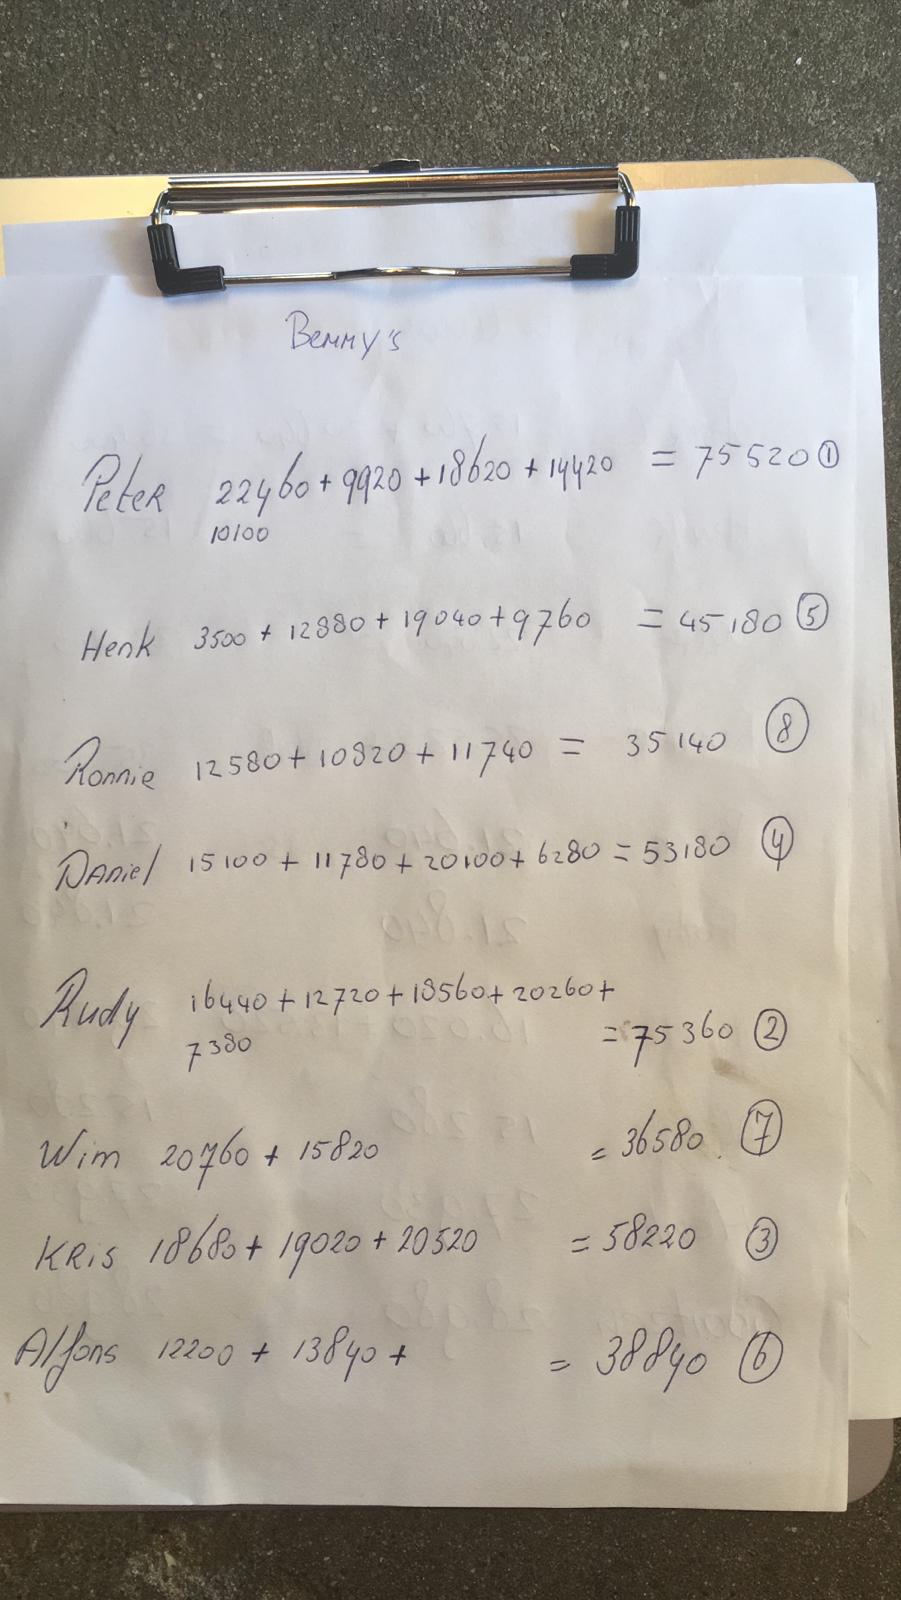 Benny's
Peter 22460 + 9920 + 18620 + 14420 = 75520 ①
10100
Henk 3500 + 12880 + 19040 + 9760 = 45180 ⑤
Ronnie 12580 + 10820 + 11740 = 35140 ⑧
Daniel 15100 + 11780 + 20100 + 6280 = 53180 ④
Rudy 16440 + 12720 + 18560 + 20260 +
7380 = 75360 ②
Wim 20760 + 15820 = 36580. ⑦
Kris 18680 + 19020 + 20520 = 58220 ③
Alfons 12200 + 13840 + = 38840 ⑥